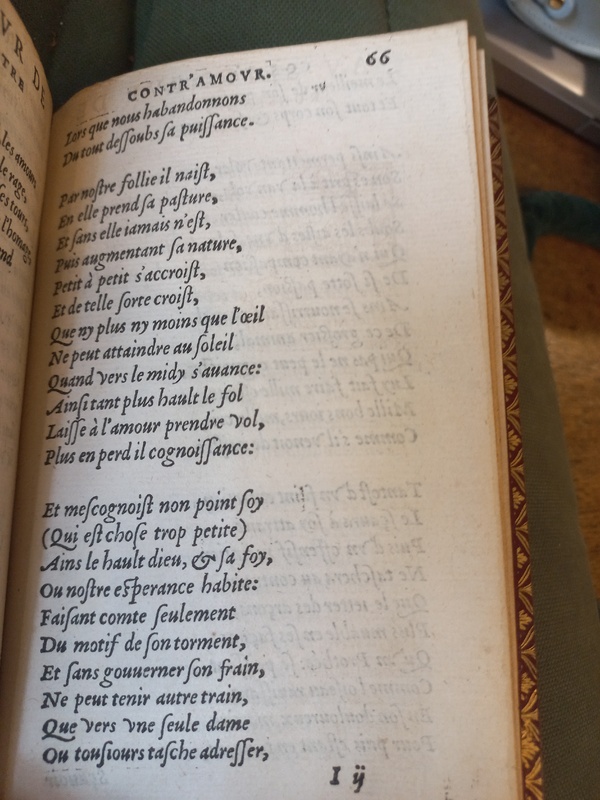 VR DE
TRE
les amours
le rage,
ses tours,
l'homage
CONTR'AMOVR. 66
Lors que nous habandonnons
Du tout deſſoubs ſa puiſſance.
Par noſtre follie il naiſt,
En elle prend ſa paſture,
Et ſans elle iamais n'eſt,
Puis augmentant ſa nature,
Petit à petit s'accroiſt,
Et de telle ſorte croiſt,
Que ny plus ny moins que l'œil
Ne peut attaindre au ſoleil
Quand vers le midy s'auance:
Ainſi tant plus hault le fol
Laiſſe à l'amour prendre vol,
Plus en perd il cognoiſſance:
Et meſcognoiſt non point ſoy
(Qui eſt choſe trop petite)
Ains le hault dieu, & ſa foy,
Ou noſtre eſperance habite:
Faiſant comte ſeulement
Du motif de ſon torment,
Et ſans gouuerner ſon frain,
Ne peut tenir autre train,
Que vers vne ſeule dame
Ou touſiours taſche adreſſer,
I ij